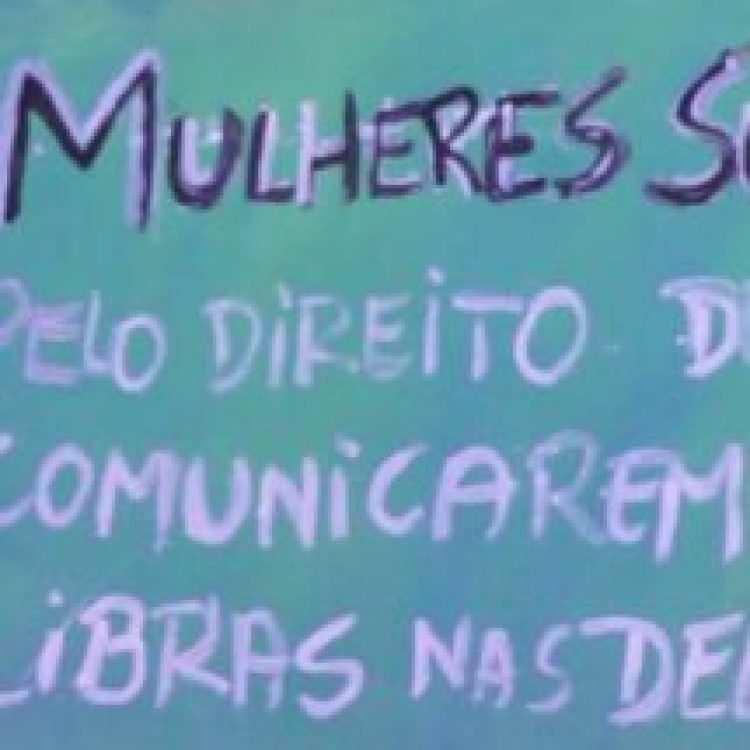 MULHERES
PELO DIREITO
COMUNICAREM
LIBRAS NAS